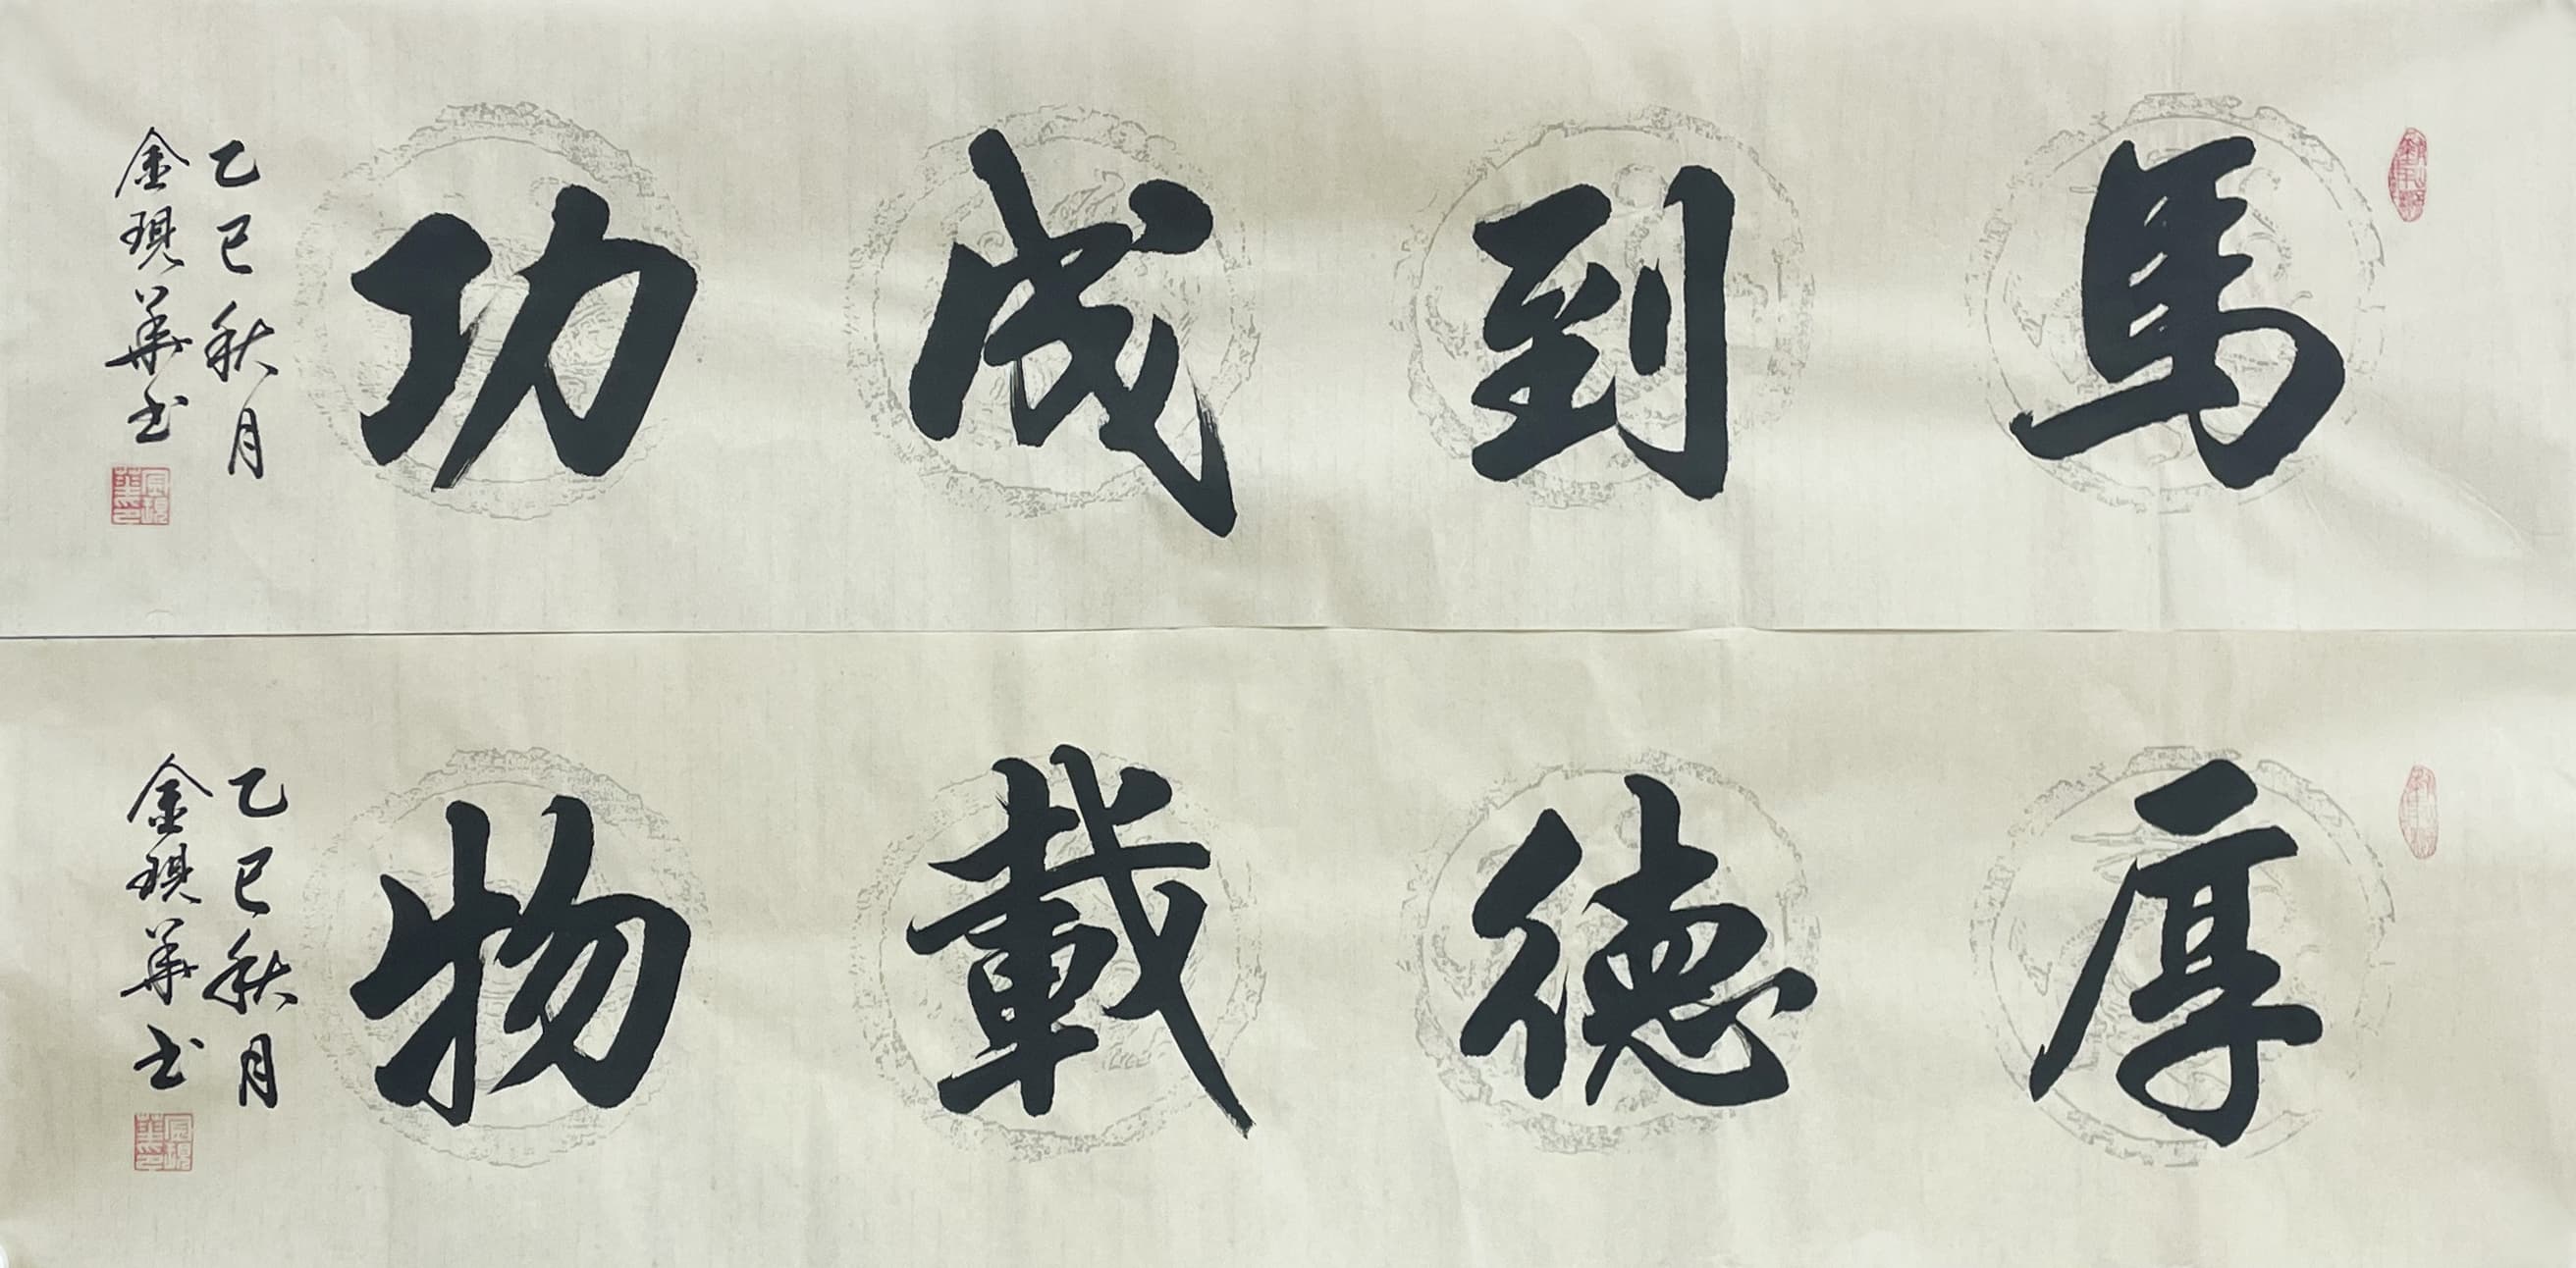 馬到成功
乙巳秋月
金琪華书
厚德載物
乙巳秋月
金琪華书